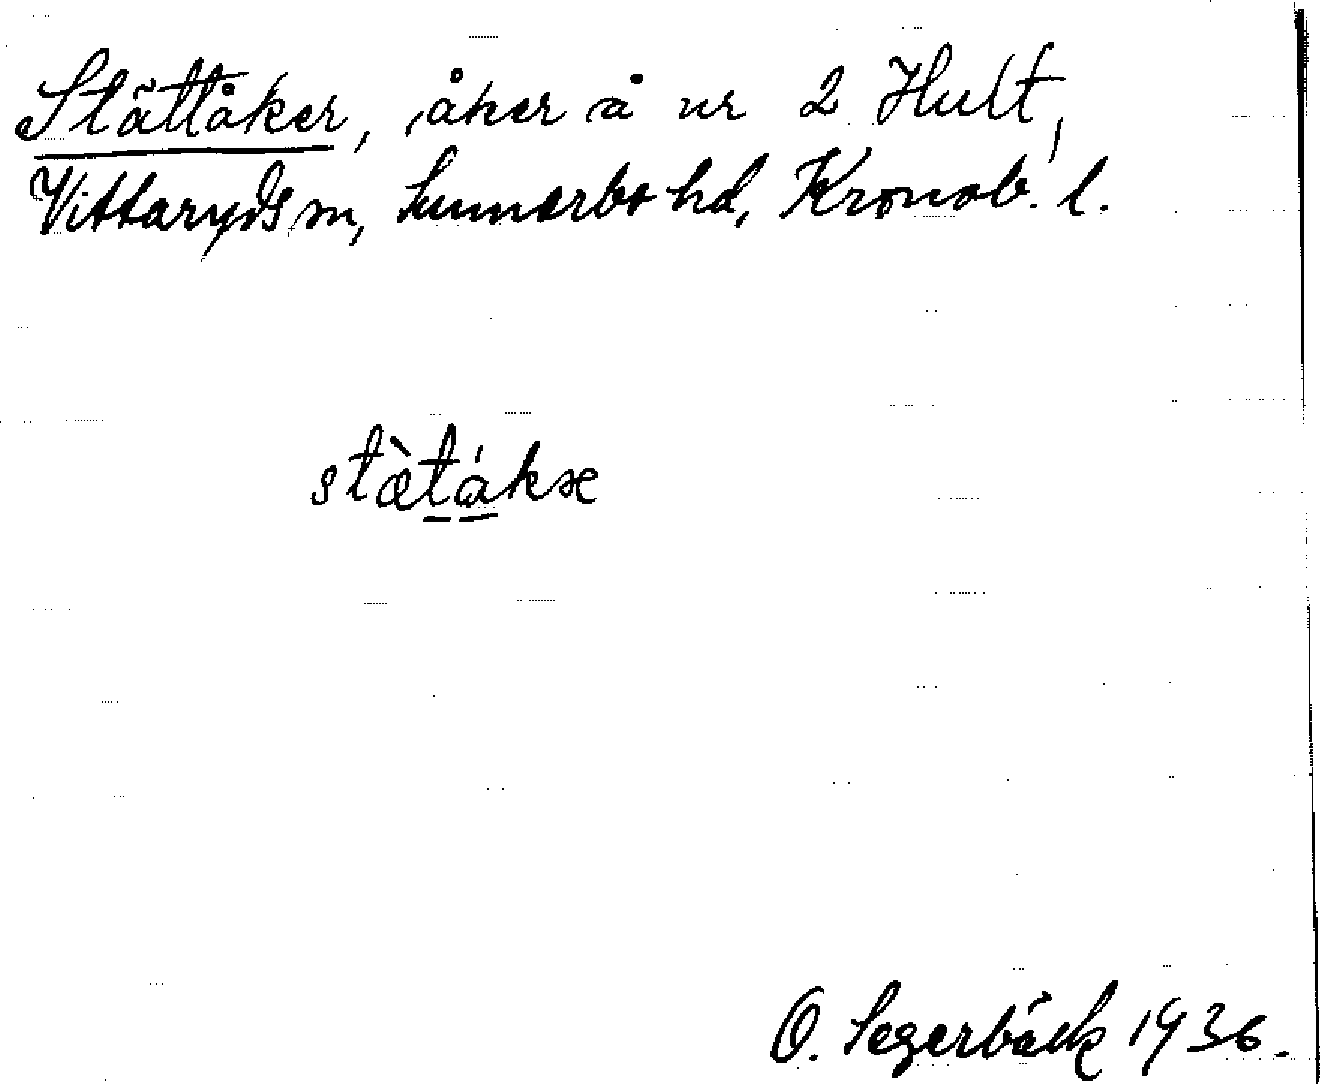 Stättåker, åker å nr 2 Hult,
Vittaryds sn, Sunnerbo hd, Kronob. l.
stæ̀tákæ
O. Segerbäck 1936.